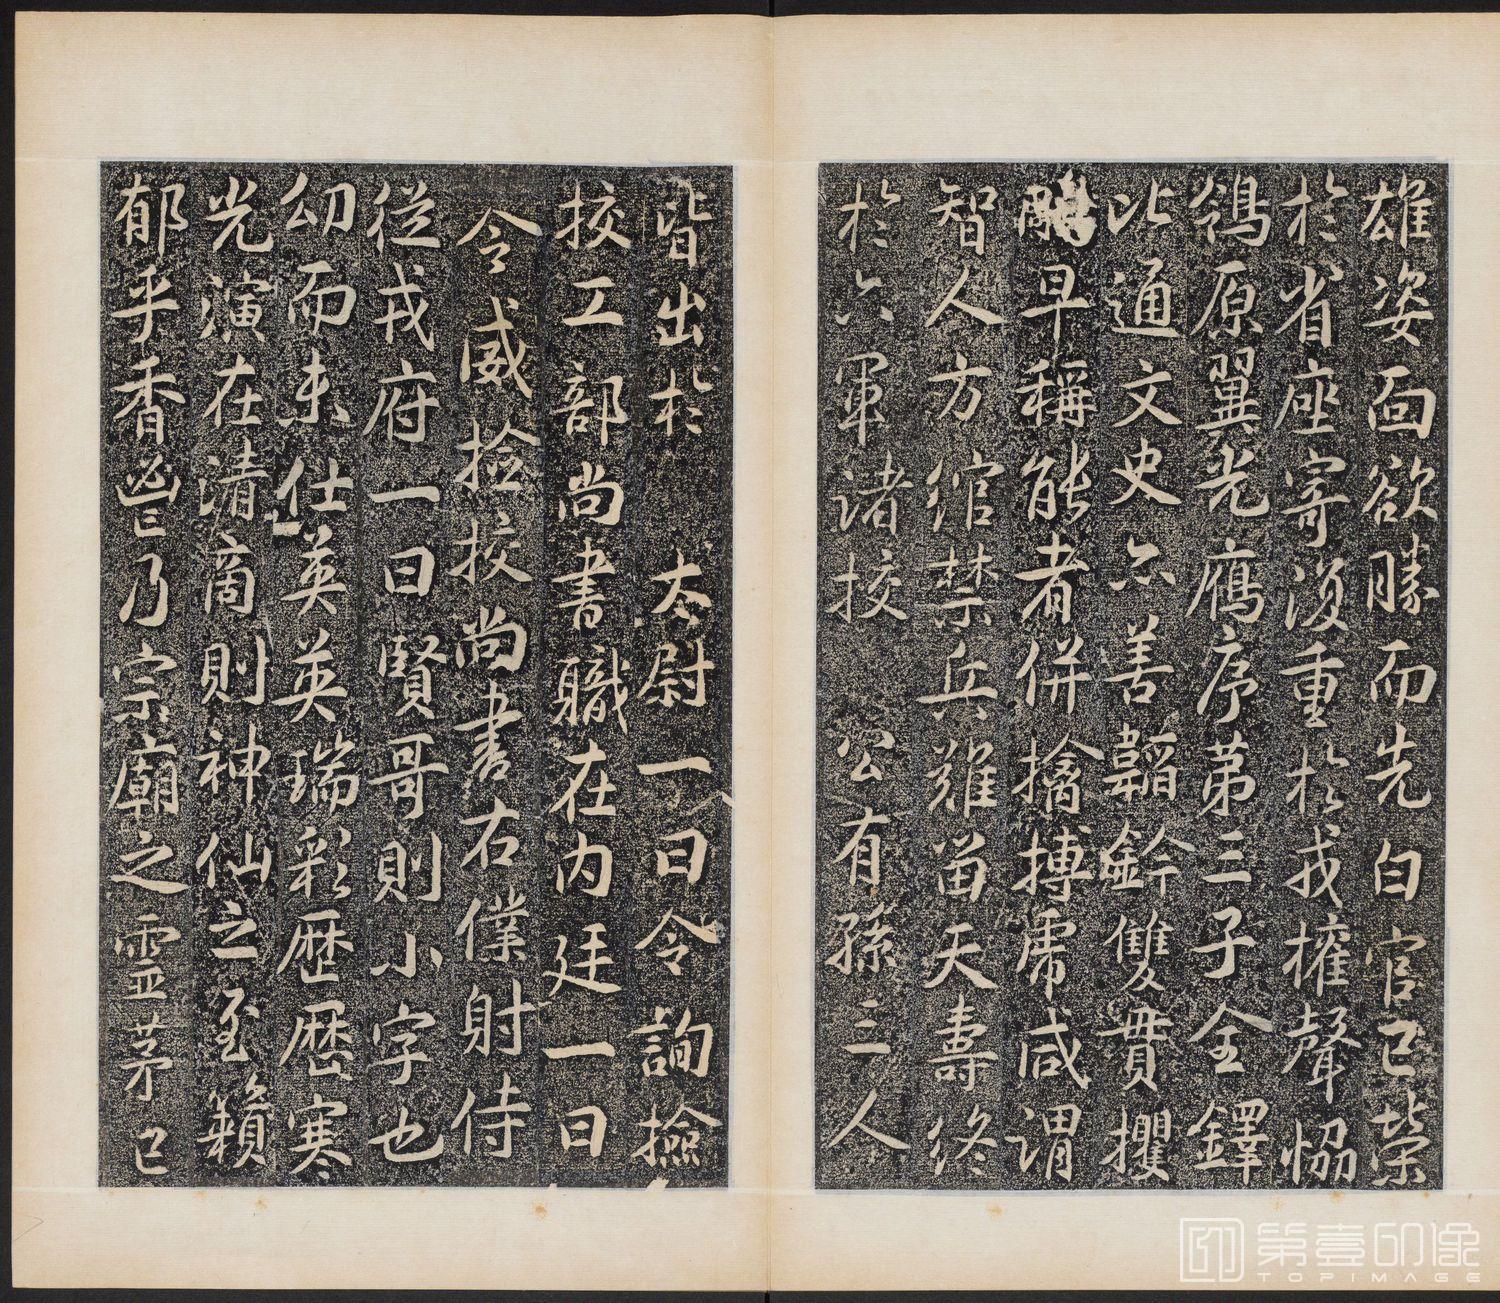 雄姿面欲勝而先白官已榮
於省座寄復重於戎擁聲恊
鴒原翼光鴈序第三子全鐸
此通文史亦善韜鈐雙實攫
鵰早稱能者併擒搏席咸謂
智人方綰禁兵難留天壽終
於六軍諸挍 公有孫三人
皆出於 太尉一曰令詢撿
挍工部尚書職在内廷一曰
令威撿挍尚書右僕射侍
從戎府一曰賢哥則小字也
幼而未仕英英瑞彩歷歷寒
光演在清商則神仙之至籟
郁乎香鬯乃宗廟之靈茅已
第壹印像
TOPIMAGE